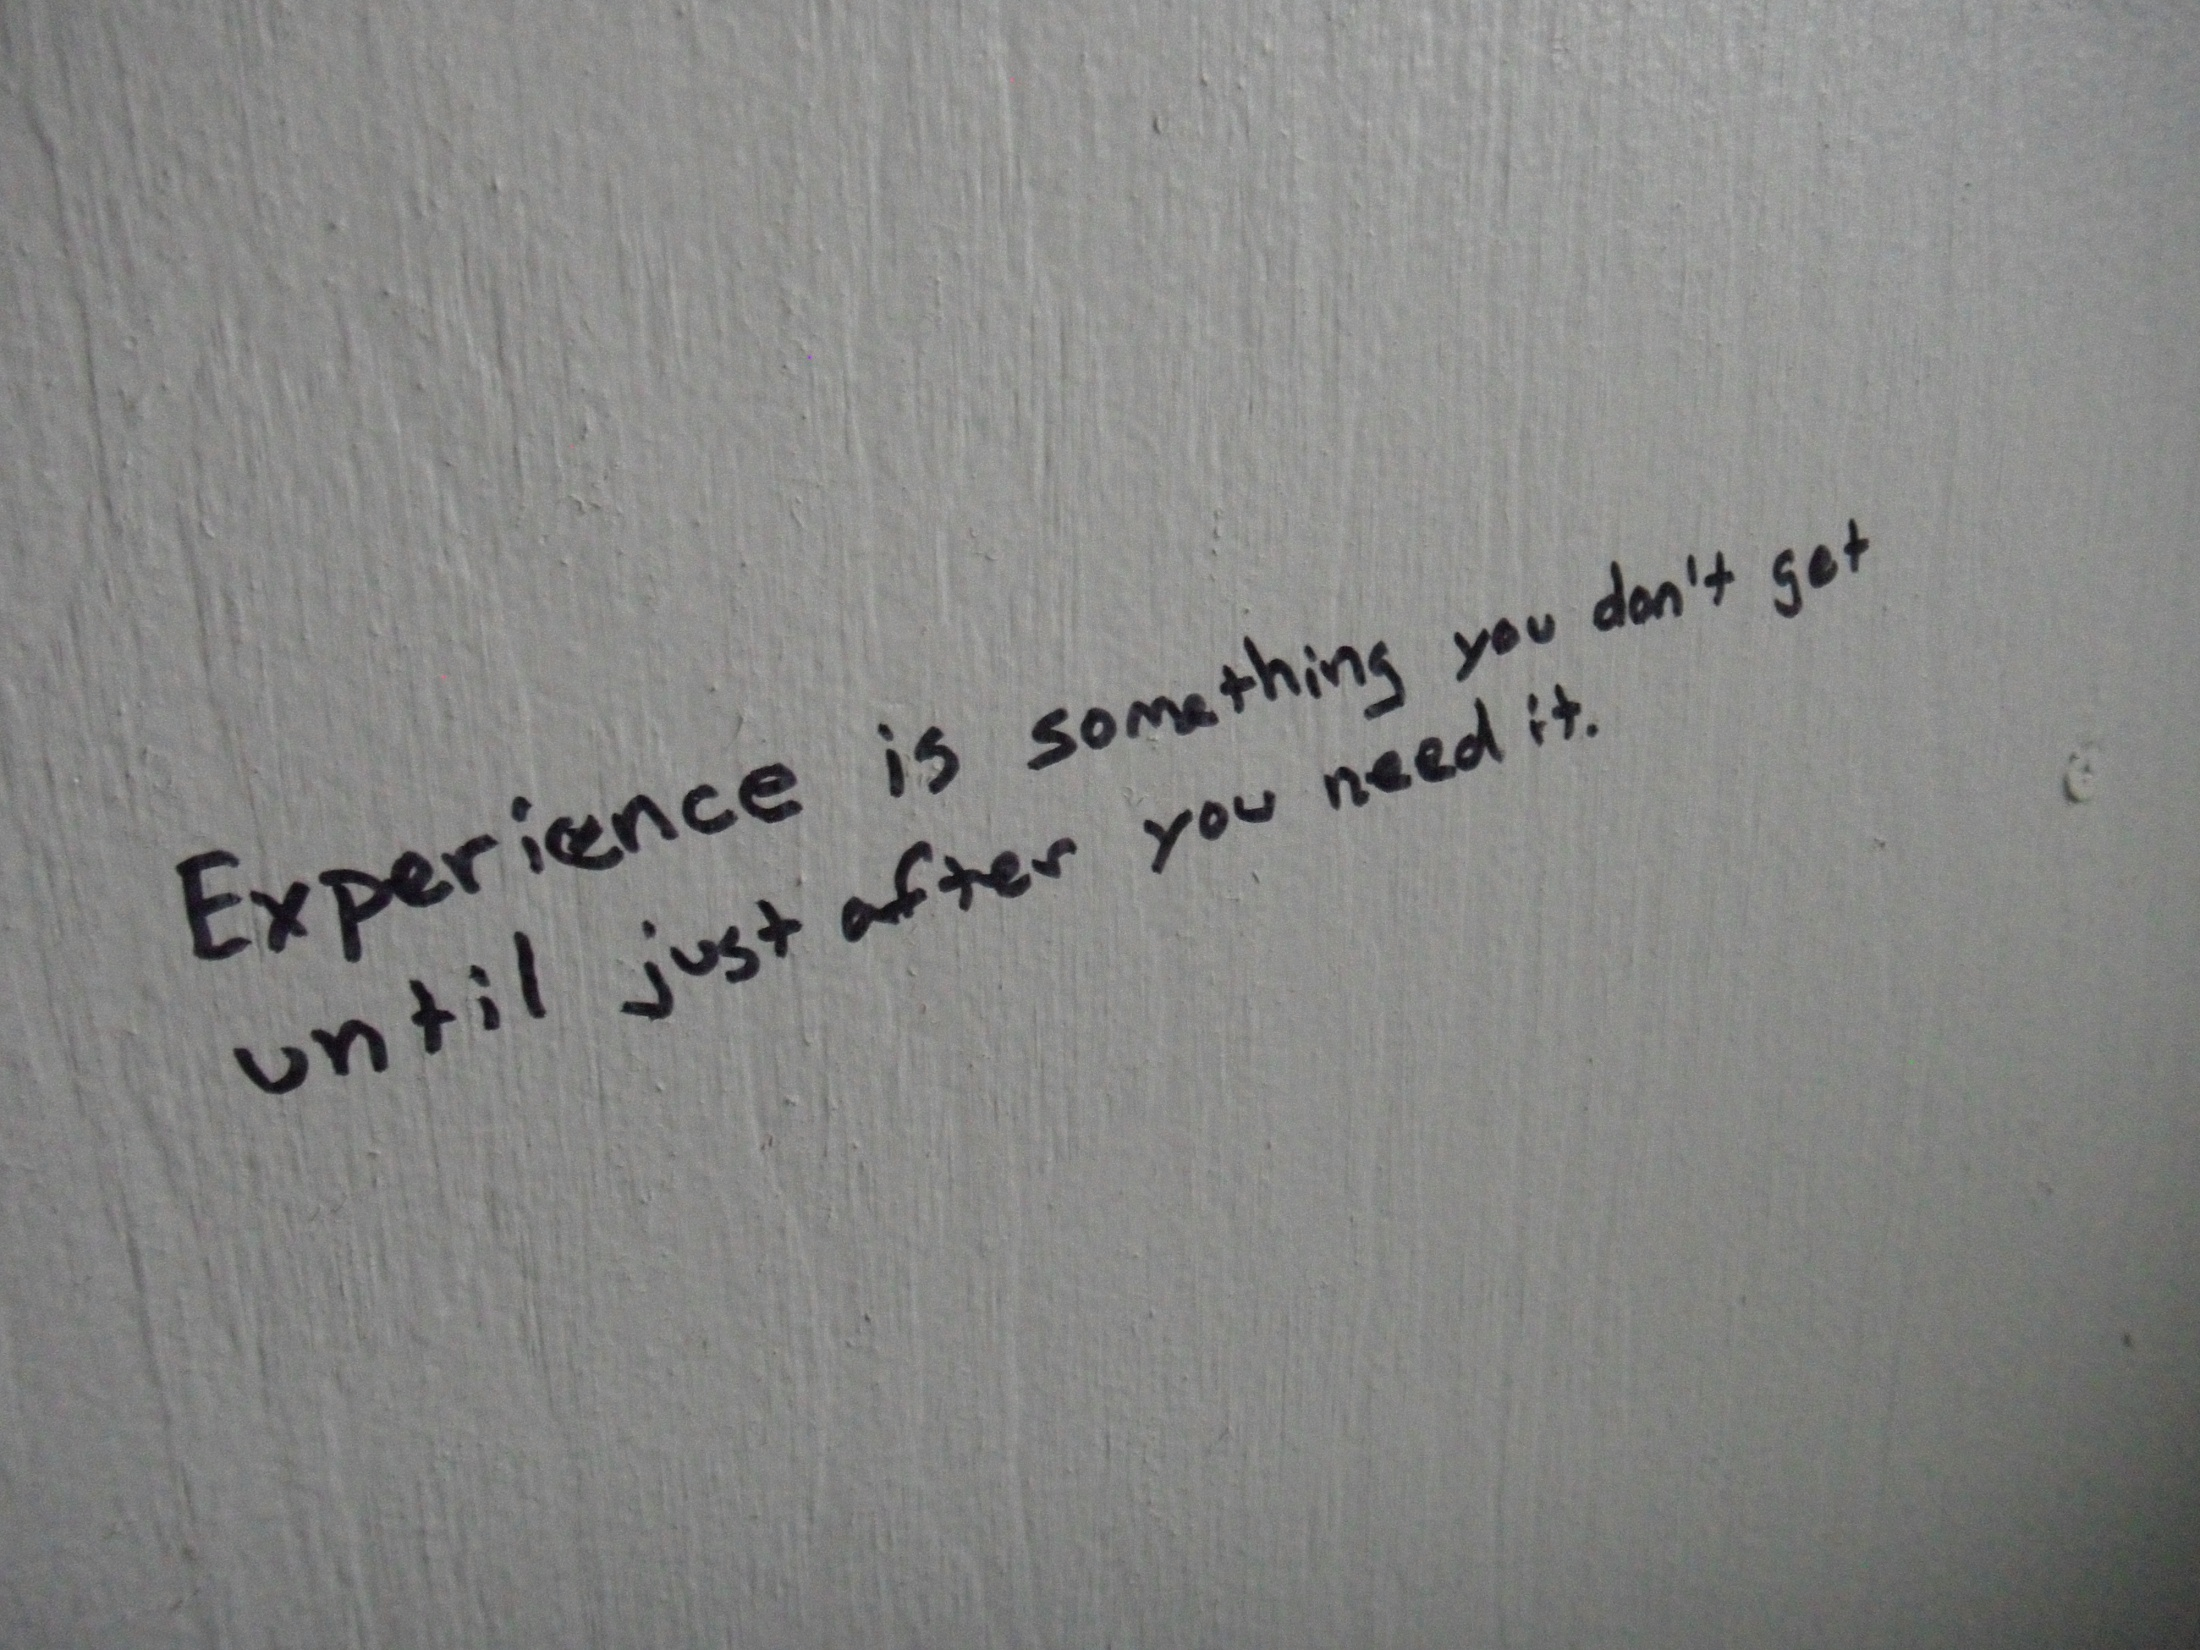 Experience is something you don't get
until just after you need it.